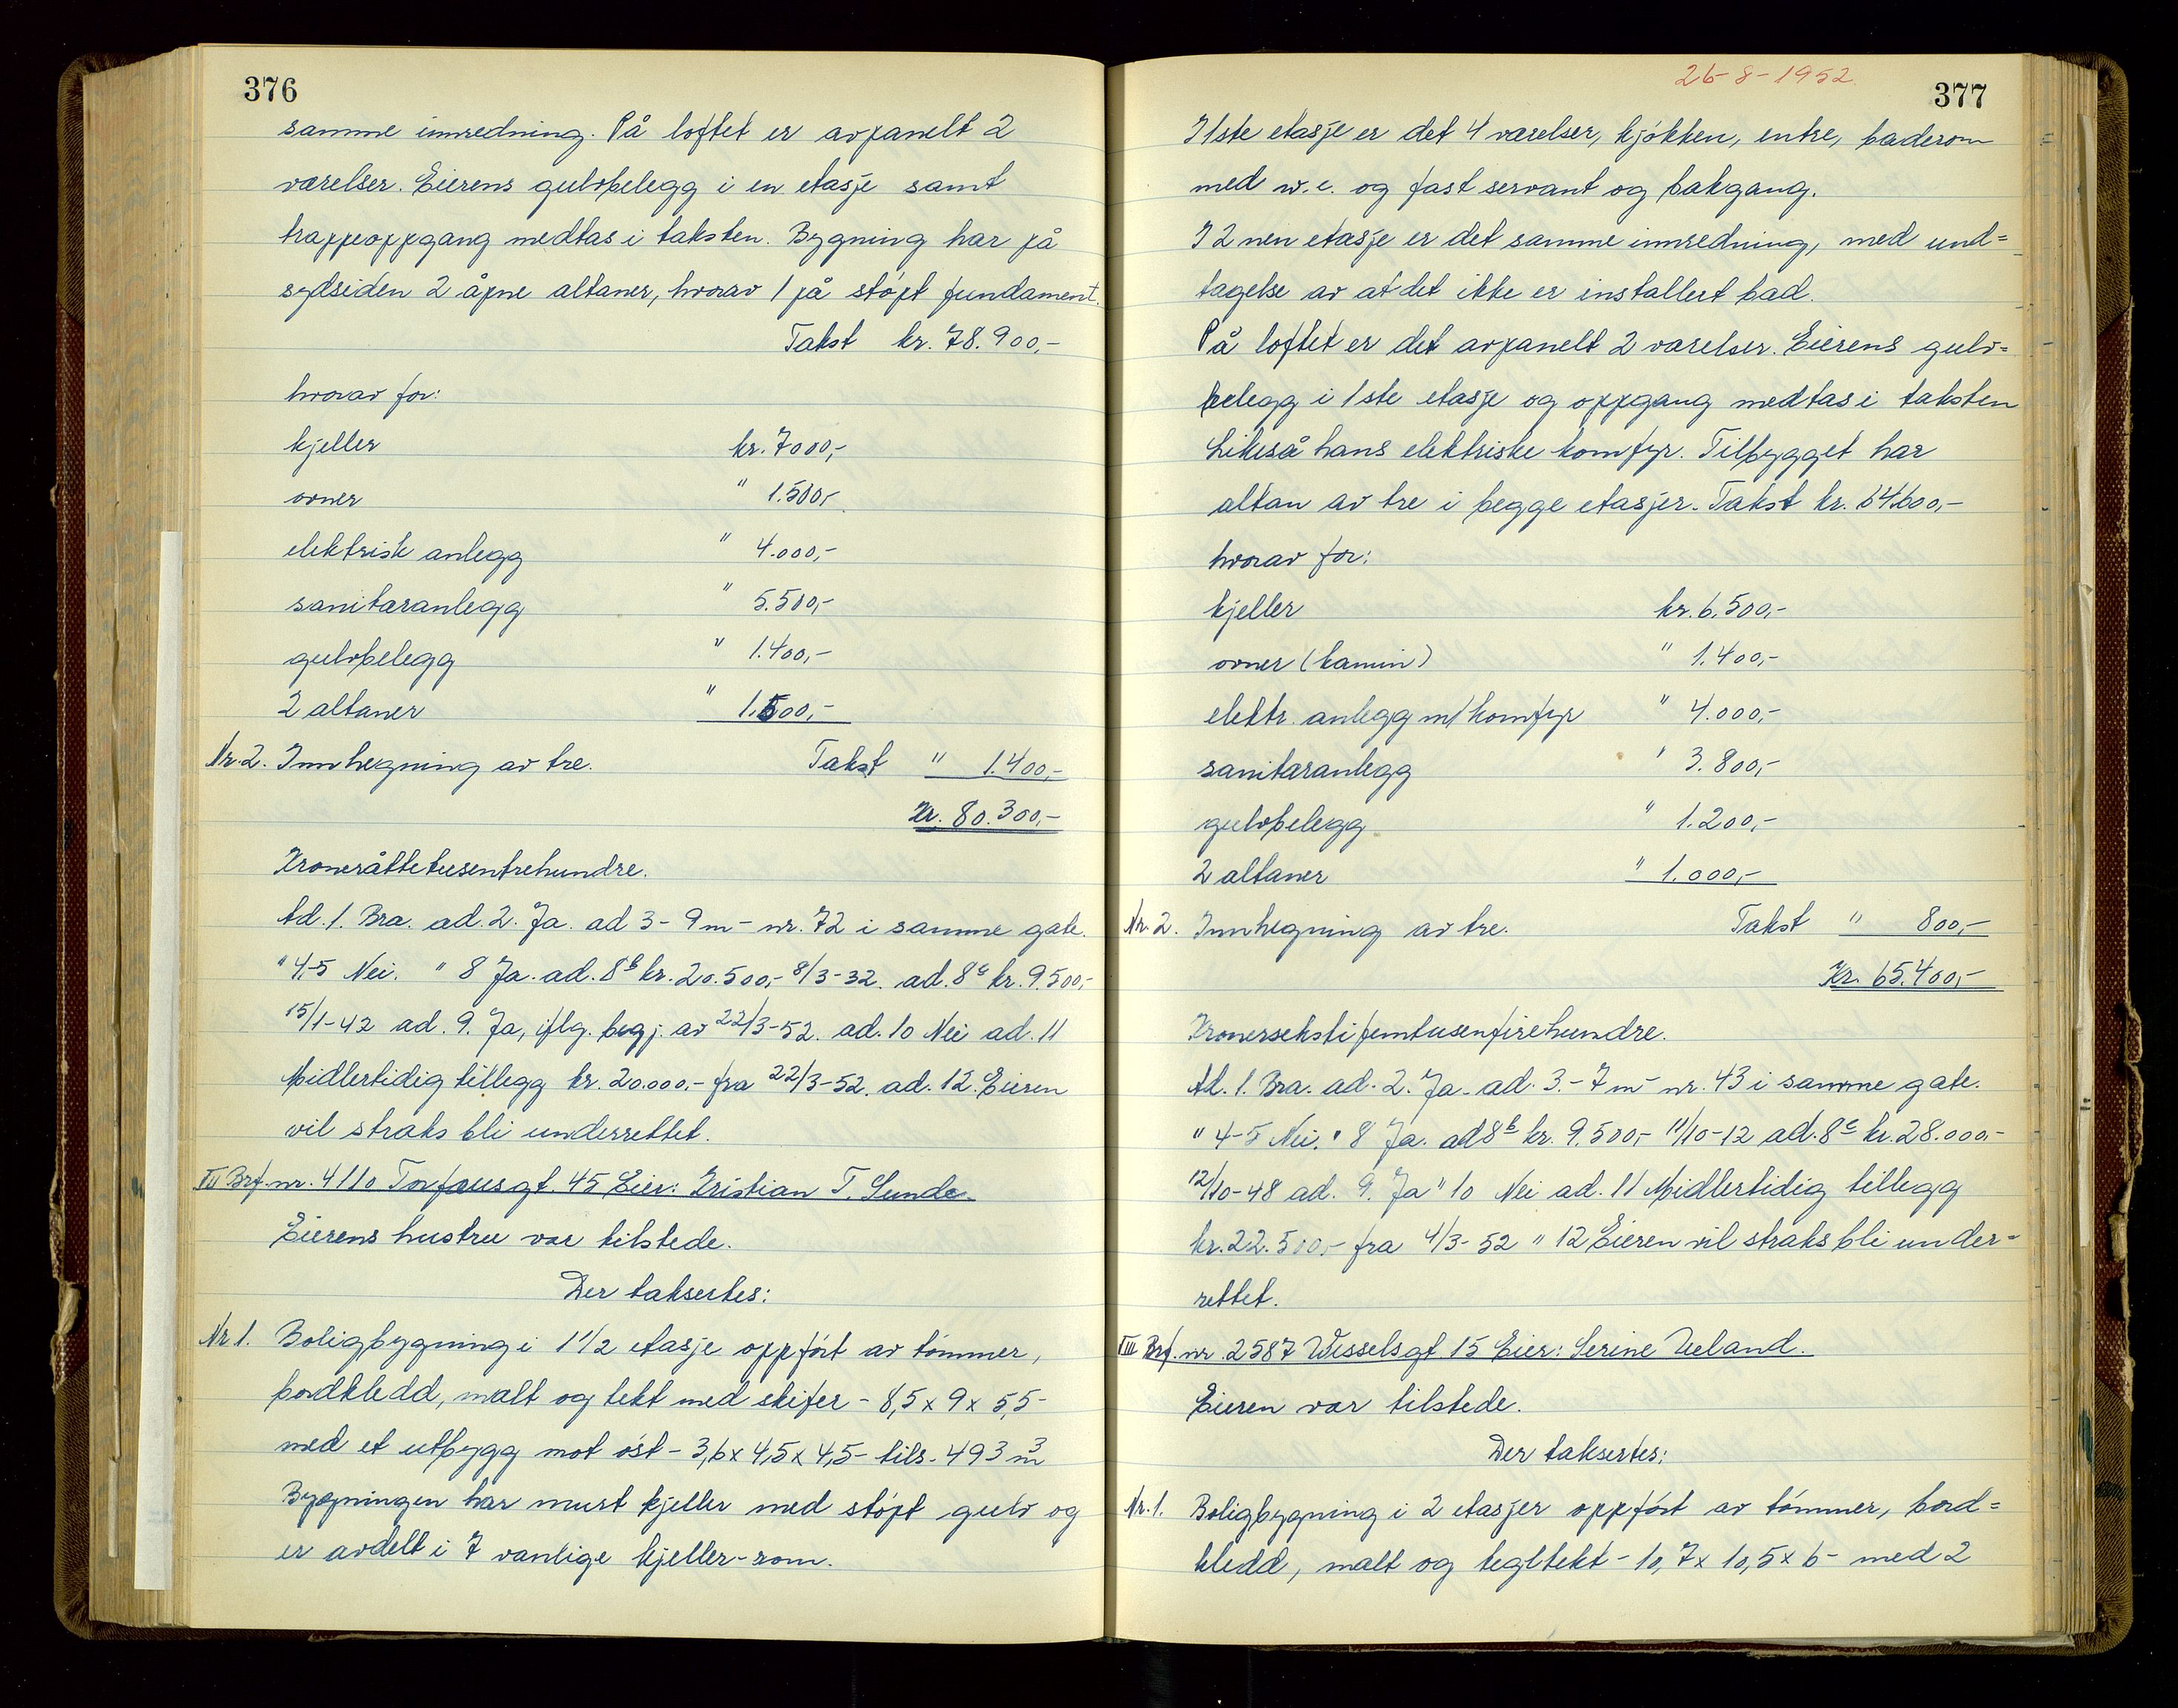 376
samme innredning. På loftet er avpanelt 2
værelser. Eierens gulvbelegg i en etasje samt
trappeoppgang medtas i taksten. Bygning har på
sydsiden 2 åpne altaner, hvorav 1 på støpt fundament.
Takst kr. 78.900,-
hvorav for:
kjeller kr. 7000,-
ovner " 1.500,-
elektrisk anlegg " 4.000,-
sanitæranlegg " 5.500,-
gulvbelegg " 1.400,-
2 altaner " 1.500,-
Nr. 2. Innhegning av tre. Takst " 1.400,-
Kr. 80.300,-
Kroneråttetusentrehundre.
Ad. 1. Bra. ad. 2. Ja. ad 3 - 9 m - nr. 72 i samme gate.
" 4-5 Nei. " 8 Ja. ad. 8b kr. 20.500,- 8/3-32. ad. 8c kr. 9.500,-
15/1-42 ad. 9. Ja, iflg. begj. av 22/3-52. ad. 10 Nei ad. 11
Midlertidig tillegg kr. 20.000.- fra 22/3-52. ad. 12. Eieren
vil straks bli underrettet.
VII Brf. nr. 4110 Torfæusgt. 45 Eier: Kristian T. Sunde.
Eierens hustru var tilstede.
Der taksertes:
Nr 1. Boligbygning i 1 1/2 etasje oppført av tømmer,
bordkledd, malt og tekt med skifer - 8,5 x 9 x 5,5 -
med et utbygg mot øst - 3,6 x 4,5 x 4,5 - tils. 493 m3
Bygningen har murt kjeller med støpt gulv og
er avdelt i 7 vanlige kjeller-rom.
26-8-1952.
377
I 1ste etasje er det 4 værelser, kjøkken, entre, baderom
med w.c. og fast servant og bakgang.
I 2nen etasje er det samme innredning, med und=
tagelse av at det ikke er installert bad.
På loftet er det avpanelt 2 værelser. Eierens gulv=
belegg i 1ste etasje og oppgang medtas i taksten
Likeså hans elektriske komfyr. Tilbygget har
altan av tre i begge etasjer. Takst kr. 64.600,-
hvorav for:
kjeller kr. 6.500,-
ovner (kamin) " 1.400,-
elektr. anlegg m/komfyr " 4.000,-
sanitæranlegg " 3.800,-
gulvbelegg " 1.200,-
2 altaner " 1.000,-
Nr. 2. Innhegning av tre. Takst " 800,-
Kr. 65.400,-
Kronersekstifemtusenfirehundre.
Ad. 1. Bra. ad. 2. Ja. ad. 3. - 7 m - nr. 43 i samme gate.
" 4-5 Nei. " 8 Ja. ad 8b kr. 9.500,- 11/10-12 ad. 8c kr. 28.000.-
12/10-48 ad. 9. Ja " 10 Nei ad. 11 Midlertidig tillegg
kr. 22.500,- fra 4/3-52 " 12 Eieren vil straks bli under=
rettet.
VIII Brf. nr. 2587 Wesselsgt. 15 Eier: Serine Ueland.
Eieren var tilstede.
Der taksertes:
Nr. 1. Boligbygning i 2 etasjer oppført av tømmer, bord=
kledd, malt og tegltekt - 10,7 x 10,5 x 6 - med 2